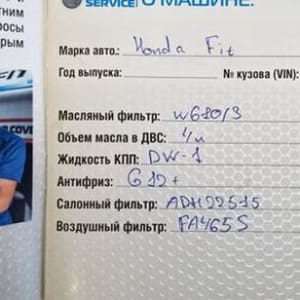 SERVICE О МАШИНЕ:
тним
росы
рым
Марка авто.: Honda Fit
Год выпуска: № кузова (VIN):
Масляный фильтр: W610/3
Объем масла в ДВС: 4л
Жидкость КПП: DW-1
Антифриз: G12+
Салонный фильтр: ADH22515
Воздушный фильтр: FA465S